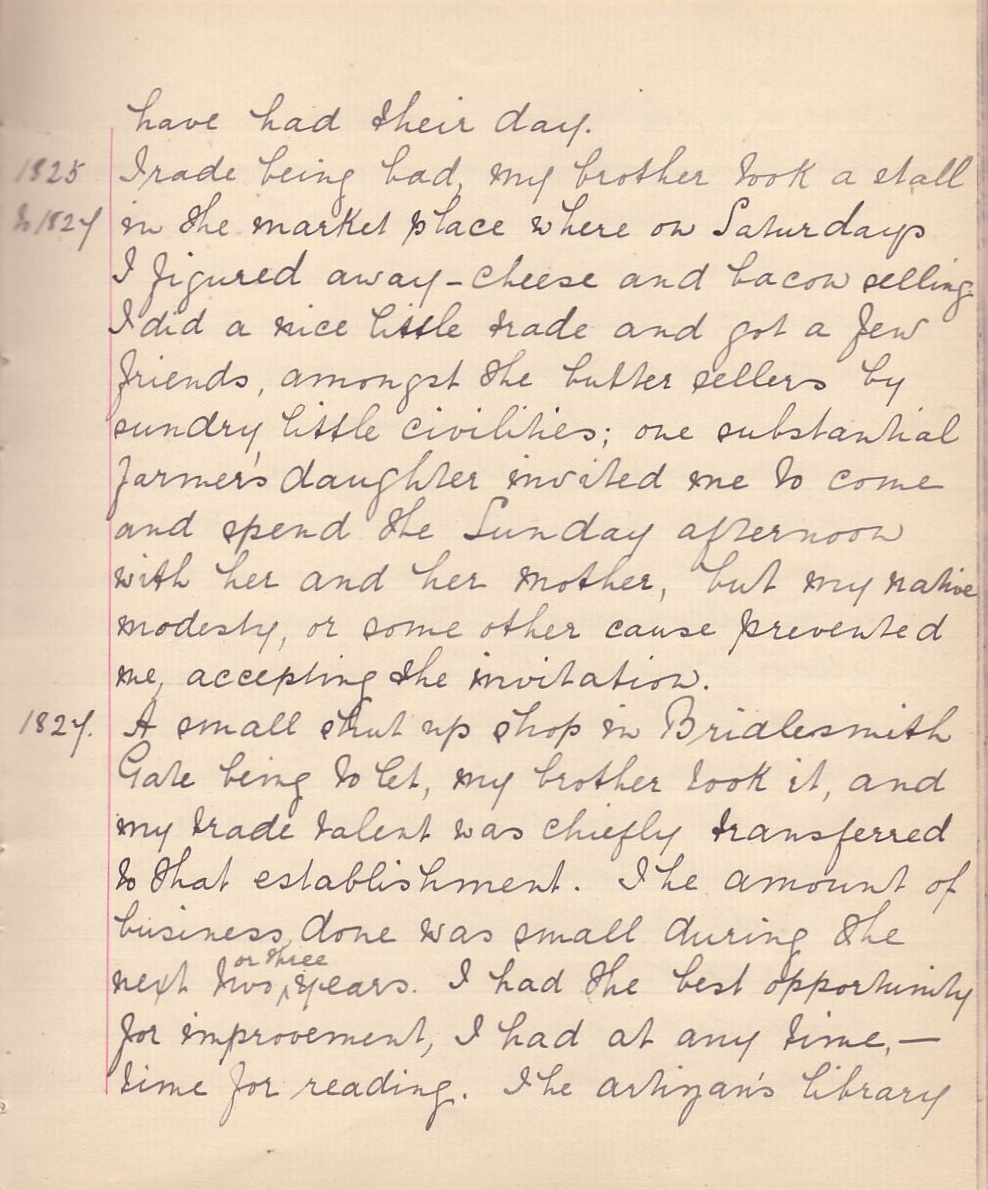 have had their day.
1825 Trade being bad, my brother took a stall
to 1827 in the market place where on Saturdays
I figured away - cheese and bacon selling.
I did a nice little trade and got a few
friends, amongst the butter sellers by
sundry, little civilities; one substantial
farmer's daughter invited me to come
and spend the Sunday afternoon
with her and her mother, but my native
modesty, or some other cause prevented
me, accepting the invitation.
1827. A small shut up shop in Bridlesmith
Gate being to let, my brother took it, and
my trade talent was chiefly transferred
to that establishment. The amount of
business, done was small during the
or three
next two, years. I had the best opportunity
for improvement, I had at any time, —
time for reading. The artizan's library